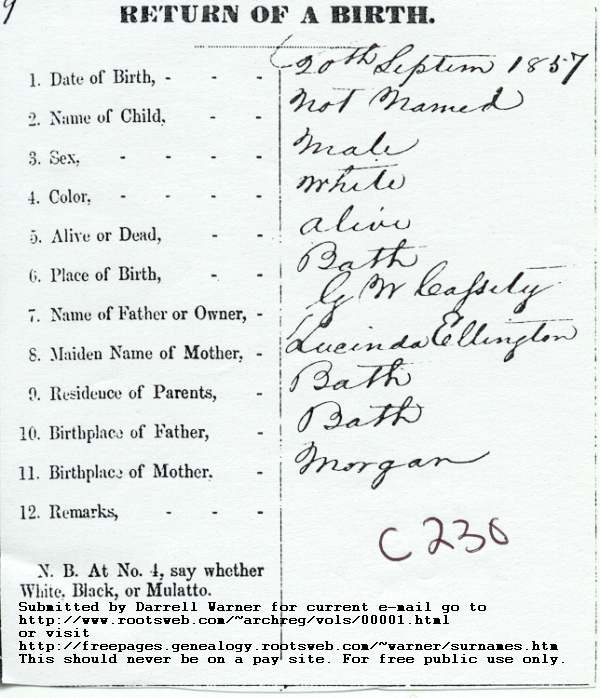 RETURN OF A BIRTH.
1. Date of Birth, - - 20th Septem 1857
2. Name of Child, - - Not Named
3. Sex, - - - - Male
4. Color, - - - - White
5. Alive or Dead, - - alive
6. Place of Birth, - - Bath
7. Name of Father or Owner, - G W Cassity
8. Maiden Name of Mother, - Lucinda Ellington
9. Residence of Parents, - Bath
10. Birthplace of Father, - Bath
11. Birthplace of Mother. - Morgan
12. Remarks, - - -
C 230
N. B. At No. 4, say whether
White, Black, or Mulatto.
Submitted by Darrell Warner for current e-mail go to
http://www.rootsweb.com/~archreg/vols/00001.html
or visit
http://freepages.genealogy.rootsweb.com/~warner/surnames.htm
This should never be on a pay site. For free public use only.